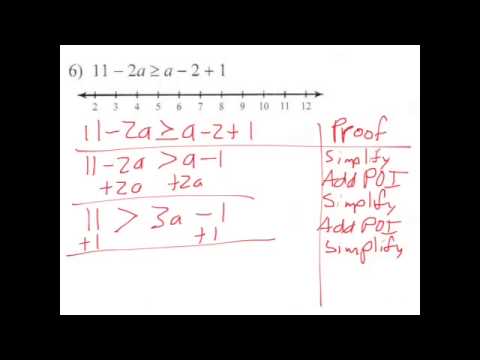 6) 11 – 2a ≥ a – 2 + 1
2 3 4 5 6 7 8 9 10 11 12
11-2a ≥ a-2+1 Proof
11-2a > a-1 Simplify
+2a +2a Add POI
Simplify
11 > 3a -1 Add POI
+1 +1 Simplify